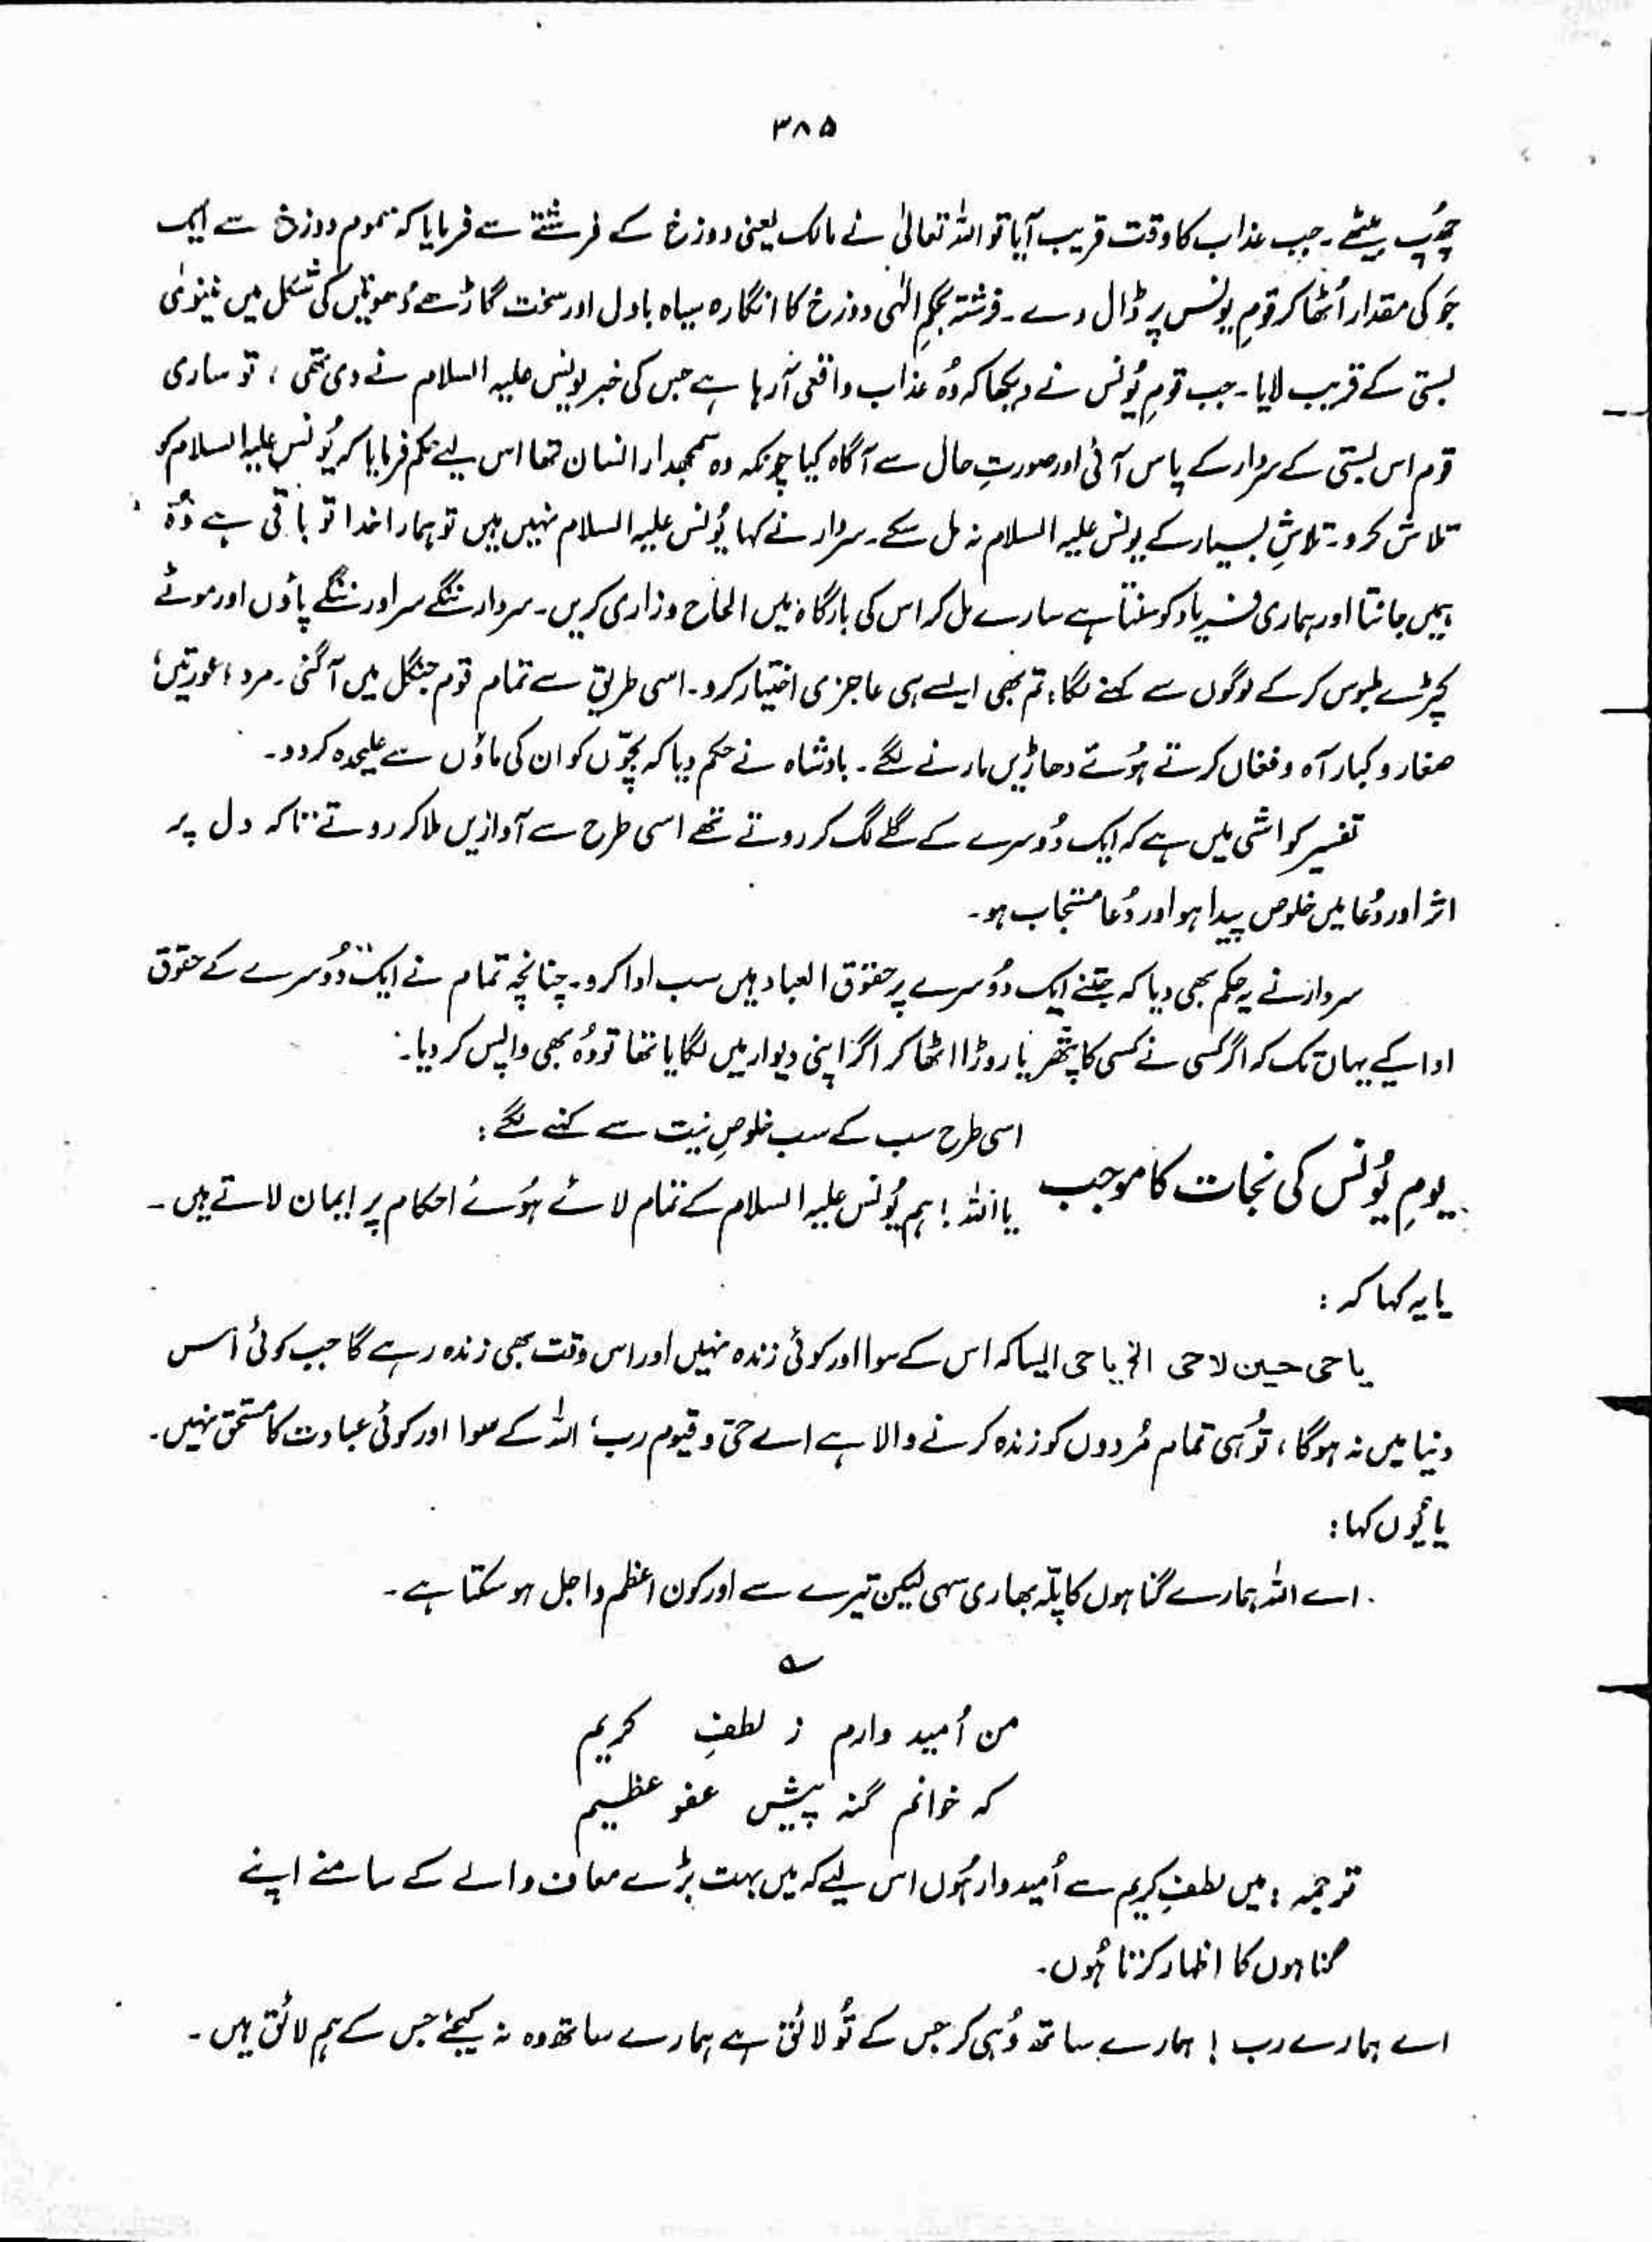 ۳۸۵
چُھپ بیٹھے۔ جب عذاب کا وقت قریب آیا تو اللہ تعالیٰ نے مالک یعنی دوزخ کے فرشتے سے فرمایا کہ سموم دوزخ سے ایک
جَو کی مقدار اُٹھا کر قومِ یونس پر ڈال دے۔ فرشتہ بحکمِ الٰہی دوزخ کا انگارہ سیاہ بادل اور سخت گاڑھے دُھوئیں کی شکل میں نینویٰ
بستی کے قریب لایا۔ جب قومِ یُونس نے دیکھا کہ وُہ عذاب واقعی آرہا ہے جس کی خبر یونس علیہ السلام نے دی تھی، تو ساری
قوم اس بستی کے سردار کے پاس آئی اور صورتِ حال سے آگاہ کیا چونکہ وہ سمجھدار انسان تھا اس لیے حکم فرمایا کہ یُونس علیہ السلام کو
تلاش کرو۔ تلاشِ بسیار کے یونس علیہ السلام نہ مل سکے۔ سردار نے کہا یُونس علیہ السلام نہیں ہیں تو ہمارا خدا تو باقی ہے وُہ
ہمیں جانتا اور ہماری فریاد کو سنتا ہے سارے مل کر اس کی بارگاہ میں الحاح وزاری کریں۔ سردار ننگے سر اور ننگے پاؤں اور موٹے
کپڑے ملبوس کرکے لوگوں سے کہنے لگا، تم بھی ایسے ہی عاجزی اختیار کرو۔ اسی طریق سے تمام قوم جنگل میں آگئی۔ مرد، عورتیں،
صغار و کبار آہ و فغاں کرتے ہُوئے دھاڑیں مارنے لگے۔ بادشاہ نے حکم دیا کہ بچّوں کو ان کی ماؤں سے علیحدہ کردو۔
تفسیر کواشی میں ہے کہ ایک دُوسرے کے گلے لگ کر روتے تھے اسی طرح سے آوازیں ملا کر روتے تاکہ دل پر
اثر اور دُعا میں خلوص پیدا ہو اور دُعا مستجاب ہو۔
سردار نے یہ حکم بھی دیا کہ جتنے ایک دُوسرے پر حقوق العباد ہیں سب ادا کرو۔ چنانچہ تمام نے ایک دُوسرے کے حقوق
ادا کیے یہاں تک کہ اگر کسی نے کسی کا پتھر یا روڑا اٹھا کر اگر اپنی دیوار میں لگایا تھا تو وُہ بھی واپس کر دیا۔
اسی طرح سب کے سب خلوصِ نیت سے کہنے لگے:
یومِ یُونس کی نجات کا موجب
یا اللہ! ہم یُونس علیہ السلام کے تمام لائے ہُوئے احکام پر ایمان لاتے ہیں۔
یا یہ کہا کہ:
یا حی حین لا حی الخ یا حی ایسا کہ اس کے سوا اور کوئی زندہ نہیں اور اس وقت بھی زندہ رہے گا جب کوئی اس
دنیا میں نہ ہوگا، تُو ہی تمام مُردوں کو زندہ کرنے والا ہے اے حیّ و قیوم رب، اللہ کے سوا اور کوئی عبادت کا مستحق نہیں۔
یا یُوں کہا:
اے اللہ ہمارے گناہوں کا پلّہ بھاری سہی لیکن تیرے سے اور کون اعظم و اجل ہو سکتا ہے۔
؎
من اُمید دارم ز لطفِ کریم
کہ خوانم گنہ پیش عفو عظیم
ترجمہ: میں لطفِ کریم سے اُمیدوار ہُوں اس لیے کہ میں بہت بڑے معاف والے کے سامنے اپنے
گناہوں کا اظہار کرتا ہُوں۔
اے ہمارے رب! ہمارے ساتھ وُہی کر جس کے تُو لائق ہے ہمارے ساتھ وہ نہ کیجئے جس کے ہم لائق ہیں۔